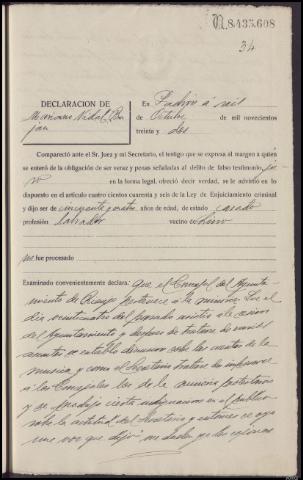 N.8,435,608
34
DECLARACION DE
Mariano Vidal
En Padrón á seis
de Octubre de mil novecientos
treinta y dos
Compareció ante el Sr. Juez y mi Secretario, el testigo que se expresa al margen a quien
se enteró de la obligación de ser veraz y penas señaladas al delito de falso testimonio,
en la forma legal, ofreció decir verdad, se le advirtió en lo
dispuesto en el artículo cuatro cientos cuarenta y seis de la Ley de Enjuiciamiento criminal
y dijo ser de cincuenta y cuatro años de edad, de estado casado
profesión labrador vecino de
no fue procesado
Examinado convenientemente declara: que es Concejal del Ayunta-
miento de y pertenece a la minoria que el
dia veintiuatro del pasado asistió a la sesion
del Ayuntamiento y despues de tratarse de varios
asuntos se entabló discusion sobre los gastos de la
musica, y como el Secretario tratase de
a los Concejales les de la minoria protestaron
y se produjo cierta indignacion en el publico
sobre la actitud del Secretario y entonces se oyó
una voz que dijo